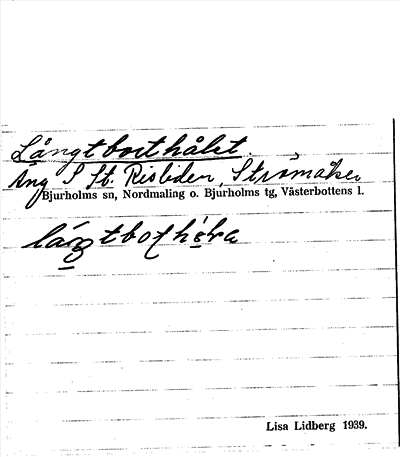 Långtborthålet.
Äng S St. Risliden, Strömåker
Bjurholms sn, Nordmaling o. Bjurholms tg, Västerbottens l.
Lisa Lidberg 1939.